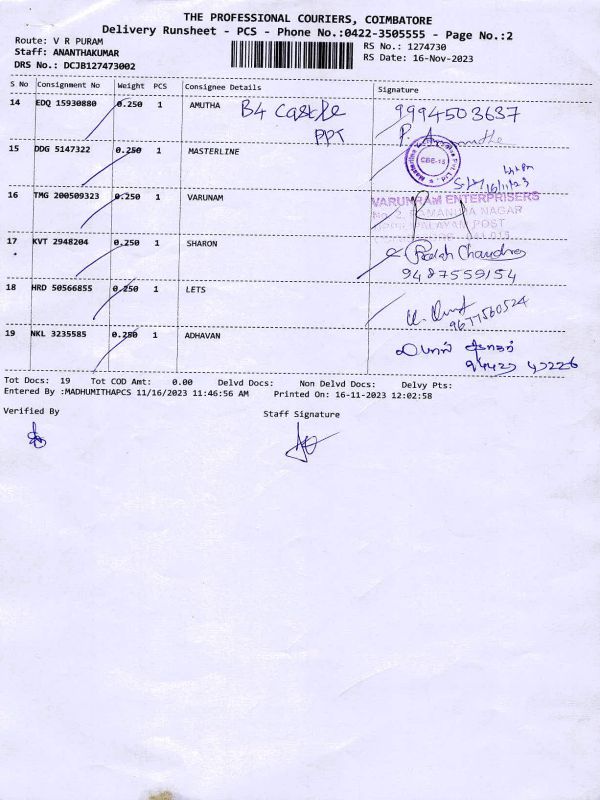 THE PROFESSIONAL COURIERS, COIMBATORE
Delivery Runsheet - PCS - Phone No.:0422-3505555 - Page No.:2
Route: V R PURAM
Staff: ANANTHAKUMAR
DRS No.: DCJB127473002
RS No.: 1274730
RS Date: 16-Nov-2023
S No Consignment No Weight PCS Consignee Details Signature
14 EDQ 15930880 0.250 1 AMUTHA B4 Castle 9994503637
PPT P.
15 DDG 5147322 0.250 1 MASTERLINE CBE-15
16/11/23
16 TMG 200509323 0.250 1 VARUNAM VARUNRAM ENTERPRISERS
RAMANUJA NAGAR
PALAYAM POST
17 KVT 2948204 0.250 1 SHARON Chandra
9487559154
18 HRD 50566855 0.250 1 LETS
9677560524
19 NKL 3235585 0.250 1 ADHAVAN
Tot Docs: 19 Tot COD Amt: 0.00 Delvd Docs: Non Delvd Docs: Delvy Pts:
Entered By :MADHUMITHAPCS 11/16/2023 11:46:56 AM Printed On: 16-11-2023 12:02:58
Verified By Staff Signature